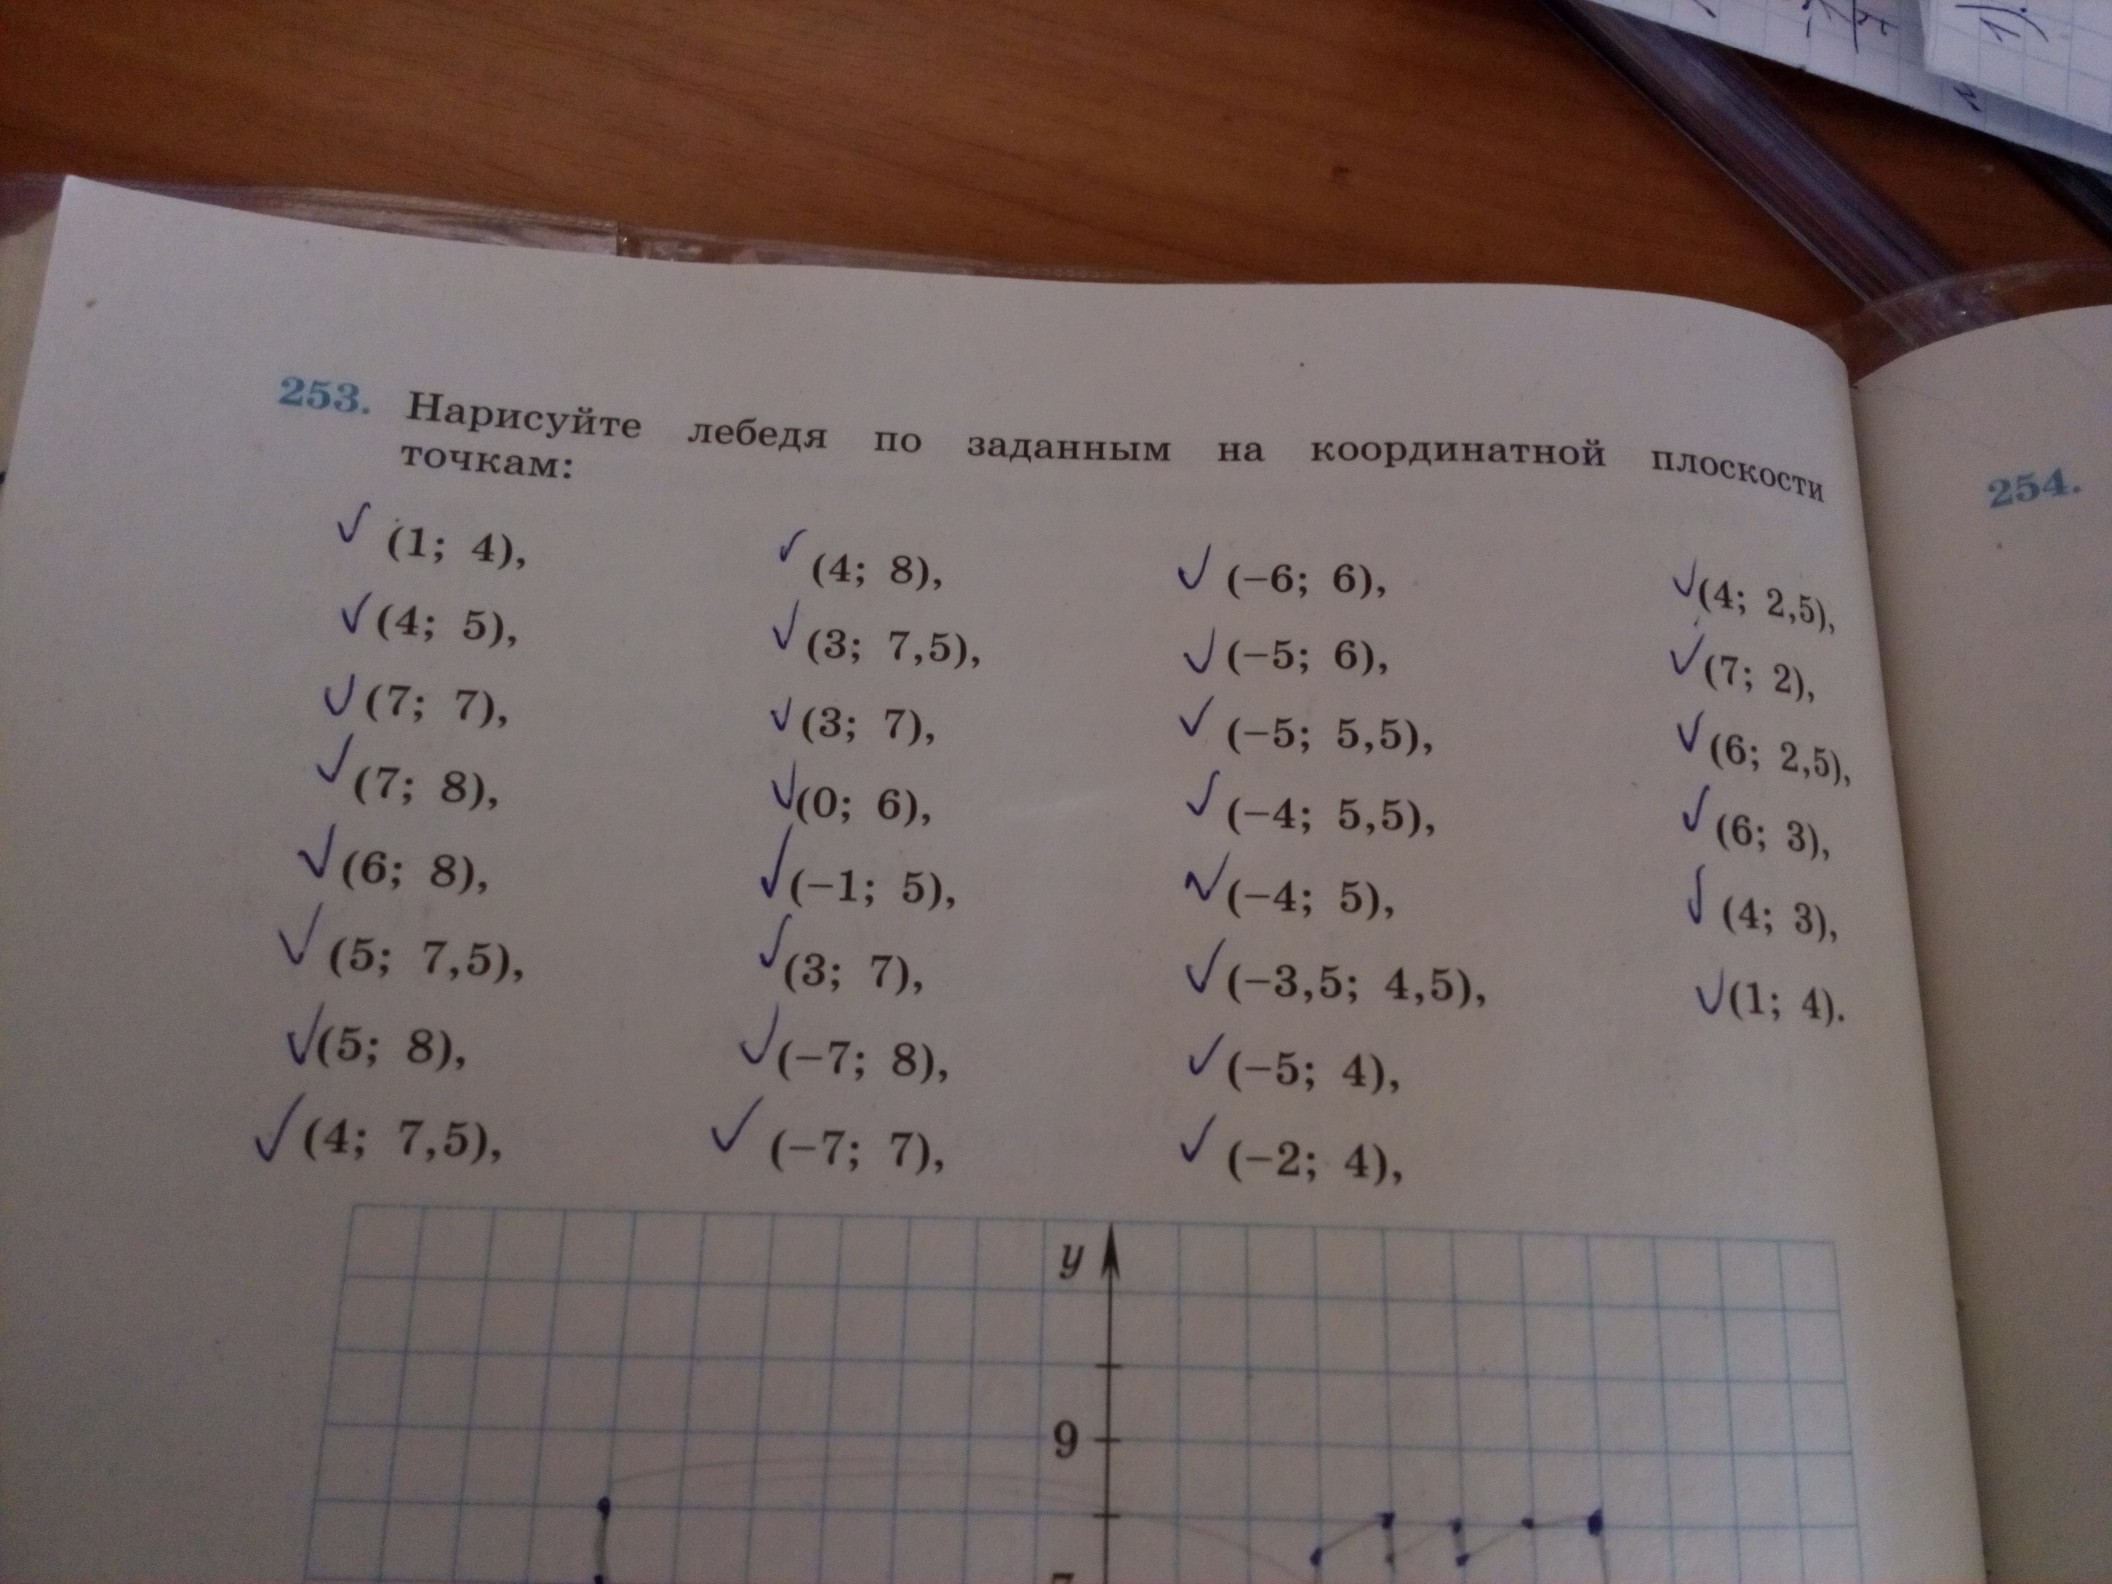 253. Нарисуйте лебедя по заданным на координатной плоскости
точкам:
(1; 4),
(4; 5),
(7; 7),
(7; 8),
(6; 8),
(5; 7,5),
(5; 8),
(4; 7,5),
(4; 8),
(3; 7,5),
(3; 7),
(0; 6),
(−1; 5),
(3; 7),
(−7; 8),
(−7; 7),
(−6; 6),
(−5; 6),
(−5; 5,5),
(−4; 5,5),
(−4; 5),
(−3,5; 4,5),
(−5; 4),
(−2; 4),
(4; 2,5),
(7; 2),
(6; 2,5),
(6; 3),
(4; 3),
(1; 4).
y
9
7
254.
1)